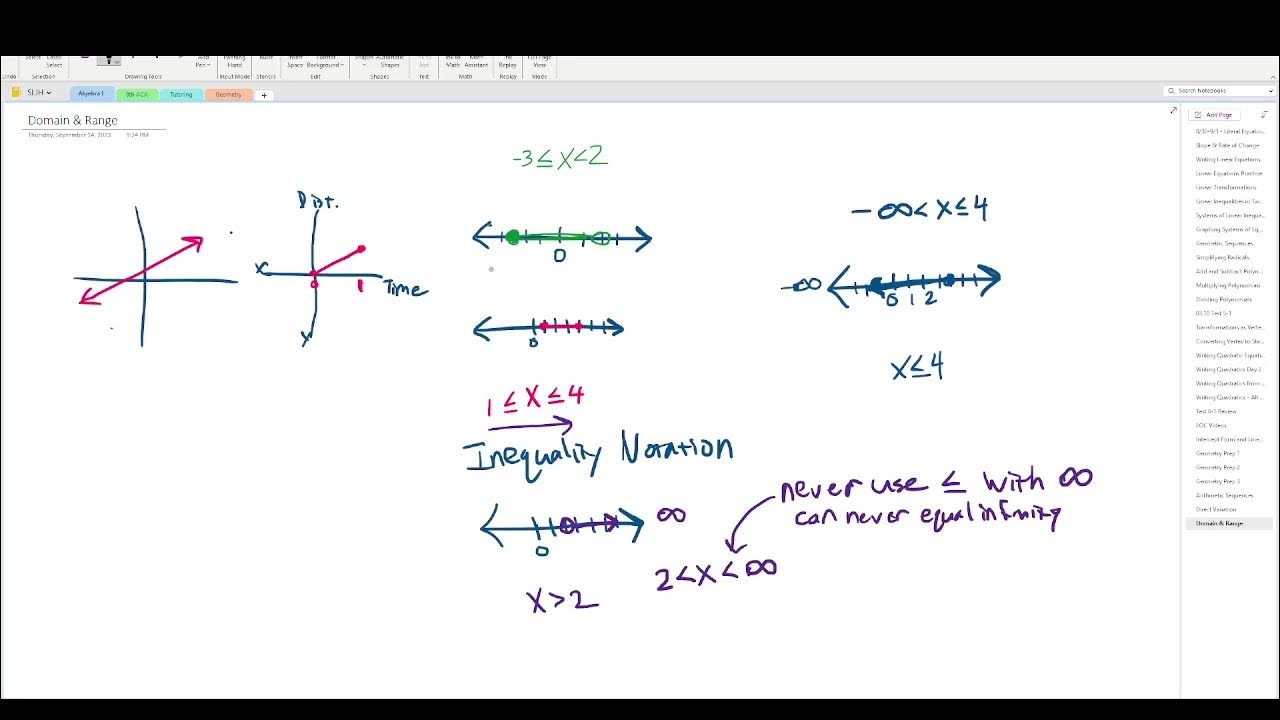 Undo
Select
Selection
Drawing Tools
Add
Pen
Panning
Hand
Input Mode
Ruler
Stencils
Insert
Space
Format
Background
Edit
Shapes
Automatic
Shapes
Shapes
Ink to
Text
Text
Ink to
Math
Math
Assistant
Math
Ink
Replay
Replay
Full Page
View
Mode
SLIH
Algebra I
8th ACA
Tutoring
Geometry
+
Search Notebooks
Domain & Range
Thursday, September 14, 2023 9:24 PM
Add Page
8/30-9/3 - Literal Equatio...
Slope & Rate of Change
Writing Linear Equations
Linear Equations Practice
Linear Transformations
Linear Inequalities in Tw...
Systems of Linear Inequa...
Graphing Systems of Eq...
Geometric Sequences
Simplifying Radicals
Add and Subtract Polyn...
Multiplying Polynomials
Dividing Polynomials
03.10 Test 5-1
Transformations as Verte...
Converting Vertex to Sta...
Writing Quadratic Equati...
Writing Quadratics Day 2
Writing Quadratics from ...
Writing Quadratics - All ...
Test 6-1 Review
EOC Videos
Intercept Form and Line...
Geometry Prep 1
Geometry Prep 2
Geometry Prep 3
Arithmetic Sequences
Direct Variation
Domain & Range
-3≤x<2
Dist.
X
0
1
Time
Y
0
0
1≤X≤4
Inequality Notation
0
∞
x>2
2<x<∞
never use ≤ with ∞
can never equal infinity
-∞<x≤4
-∞
0 1 2
x≤4